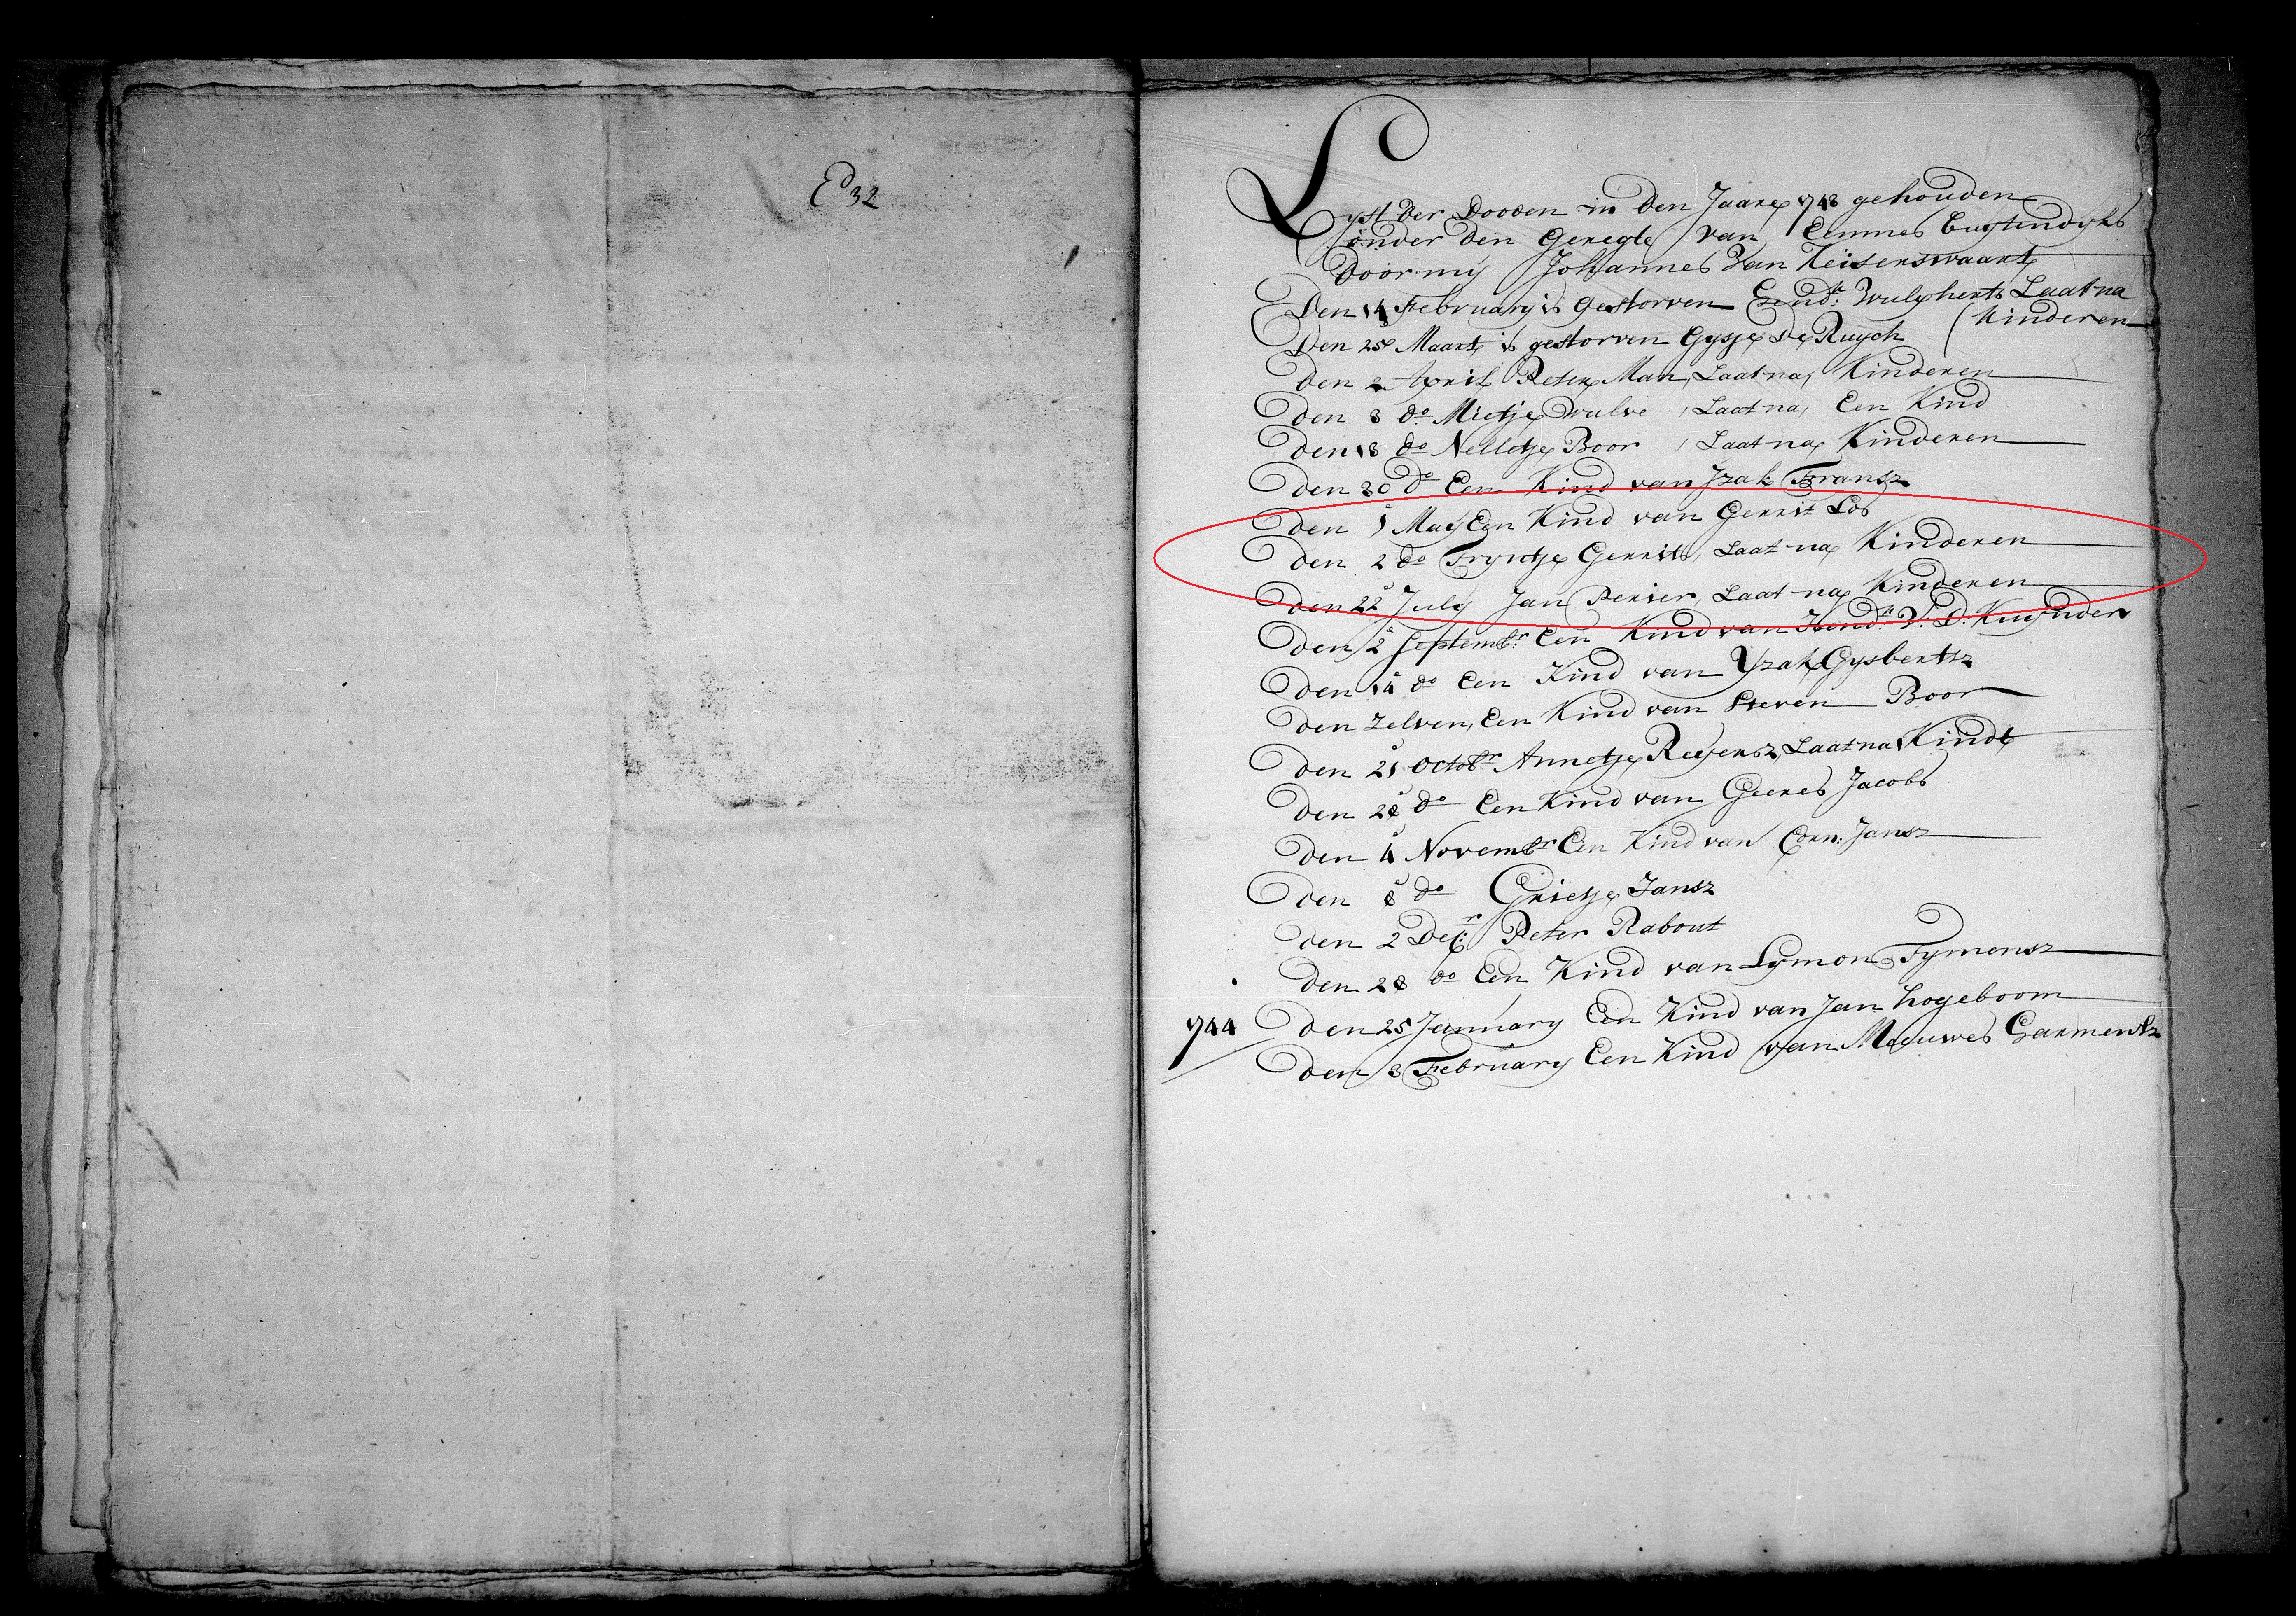 E 32
Lyst der Dooden in den Jaare 1743 gehouden
onder den Geregte van Eemnes Buytendyks
door my Johannes Van Keiserswaart
Den 14 February is gestorven Hend:k Wulphertz Laat na
Kinderen
Den 25e Maart is gestorven Gysje de Ruych
Den 2 April Peter Man, Laat na, Kinderen
Den 3 do Mietje Wulve, Laat na, Een Kind
Den 18 do Nelletje Boor, Laat na Kinderen
Den 30 do Een Kind van Jzak Fransz
Den 1 May Een Kind van Gerrit Los
Den 2 do Tryntje Gerrits, Laat na Kinderen
Den 22 July Jan Perier, Laat na Kinderen
Den 2 Septemb:r Een Kind van Hend:k V: D: Kuynder
Den 14 do Een Kind van Yzak Gysbertsz
Den Zelven, Een Kind van Steven Boor
Den 21 Octobr Annetje Reyersz, Laat na 1 Kindt
Den 28 do Een Kind van Geeres Jacobs
Den 4 Novembr Een Kind van Corn: Jansz
Den 8 do Grietje Jansz
Den 2 Dec:r Peter Rabout
Den 28 do Een Kind van Symon Tymensz
1744 Den 25 January Een Kind van Jan Hogeboom
Den 3 February Een Kind van Meuwes Harmensz